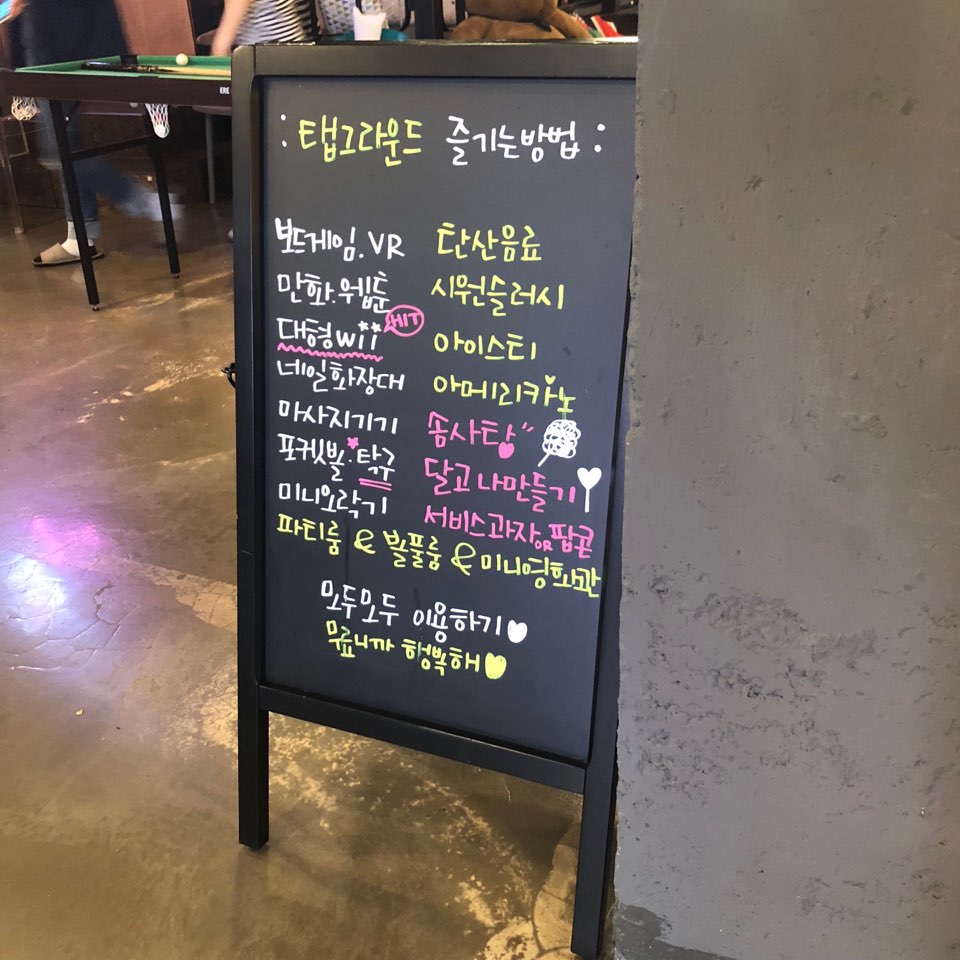 : 탭그라운드 즐기는방법 :
보드게임.VR
만화.웹툰
대형wii HIT
네일화장대
마사지기기
포켓볼·탁구
미니오락기
탄산음료
시원슬러시
아이스티
아메리카노
솜사탕
달고나만들기
서비스과자OR팝콘
파티룸 & 발풀룸 & 미니영화관
모두모두 이용하기♥
무료니까 행복해♥
ERE